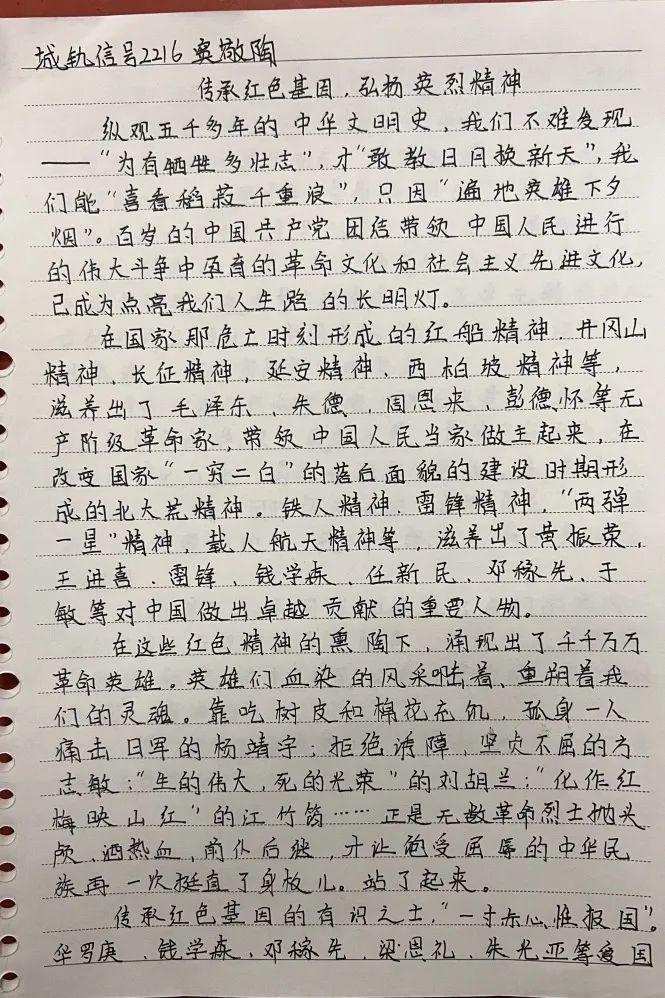 城轨信号2216 窦敬陶
传承红色基因，弘扬英烈精神
纵观五千多年的中华文明史，我们不难发现
——“为有牺牲多壮志”，才“敢教日月换新天”，我
们能“喜看稻菽千重浪”，只因“遍地英雄下夕
烟”。百岁的中国共产党团结带领中国人民进行
的伟大斗争中孕育的革命文化和社会主义先进文化，
已成为点亮我们人生路的长明灯。
在国家那危亡时刻形成的红船精神、井冈山
精神、长征精神、延安精神、西柏坡精神等，
滋养出了毛泽东、朱德、周恩来、彭德怀等无
产阶级革命家，带领中国人民当家做主起来，在
改变国家“一穷二白”的落后面貌的建设时期形
成的北大荒精神。铁人精神、雷锋精神，“两弹
一星”精神，载人航天精神等，滋养出了黄振荣，
王进喜、雷锋、钱学森、任新民、邓稼先、于
敏等对中国做出卓越贡献的重要人物。
在这些红色精神的熏陶下，涌现出了千千万万
革命英雄。英雄们血染的风采着、重朔着我
们的灵魂。靠吃树皮和棉花充饥，孤身一人
痛击日军的杨靖宇；拒绝诱障，坚贞不屈的方
志敏；“生的伟大，死的光荣”的刘胡兰；“化作红
梅映山红”的江竹筠……正是无数革命烈士抛头
颅、洒热血，前仆后继，才让饱受屈辱的中华民
族再一次挺直了身板儿。站了起来。
传承红色基因的有识之士，“一寸赤心惟报国”。
华罗庚、钱学森、邓稼先、梁思礼、朱光亚等爱国